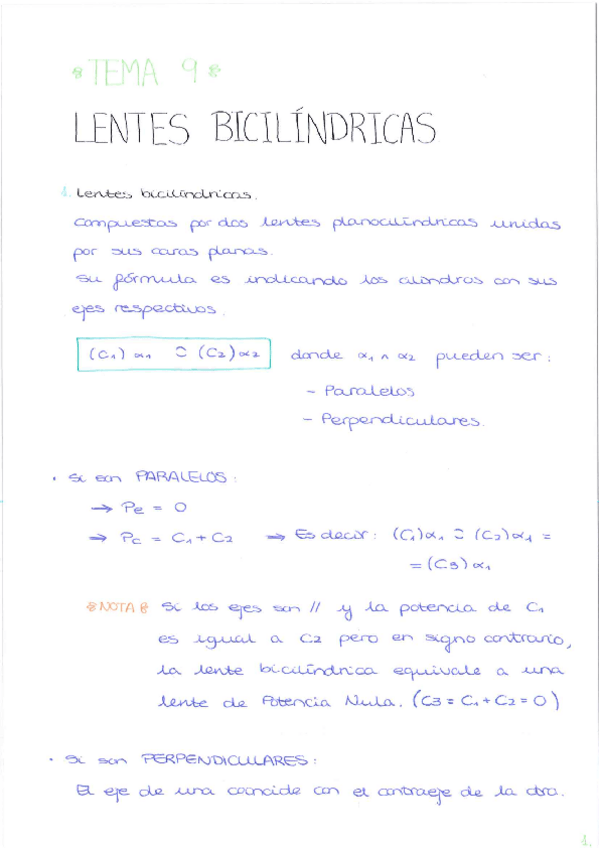 *TEMA 9*
LENTES BICILÍNDRICAS
1. Lentes bicilíndricas.
Compuestas por dos lentes planocilíndricas unidas
por sus caras planas.
Su fórmula es indicando los cilindros con sus
ejes respectivos.
(C1) α1 ⊃ (C2) α2 donde α1 ∧ α2 pueden ser:
- Paralelos
- Perpendiculares.
· Si son PARALELOS:
→ Pe = 0
→ Pc = C1 + C2 → Es decir: (C1)α1 ⊃ (C2)α1 =
= (C3) α1
*NOTA* Si los ejes son // y la potencia de C1
es igual a C2 pero en signo contrario,
la lente bicilíndrica equivale a una
lente de Potencia Nula. (C3 = C1 + C2 = 0)
· Si son PERPENDICULARES:
El eje de una coincide con el contraeje de la otra.
1.